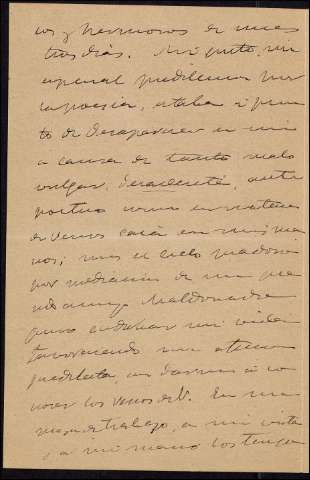 cos y hermosos de nues
tros días. Mi gusto, mi
especial predilección por
la poesía, estaba a pun
to de desaparecer en mi
a causa de tanto malo
vulgar, decadente, anti
poético como en materia
de versos caía en mis ma
nos; mas el cielo
por mediación de un
amigo Maldonado
para endulzar mi vida
favoreciendo mi
predilecta, me a co
nocer los versos de V. En mi
mesa de trabajo, a mi vista
y a mi mano los tengo